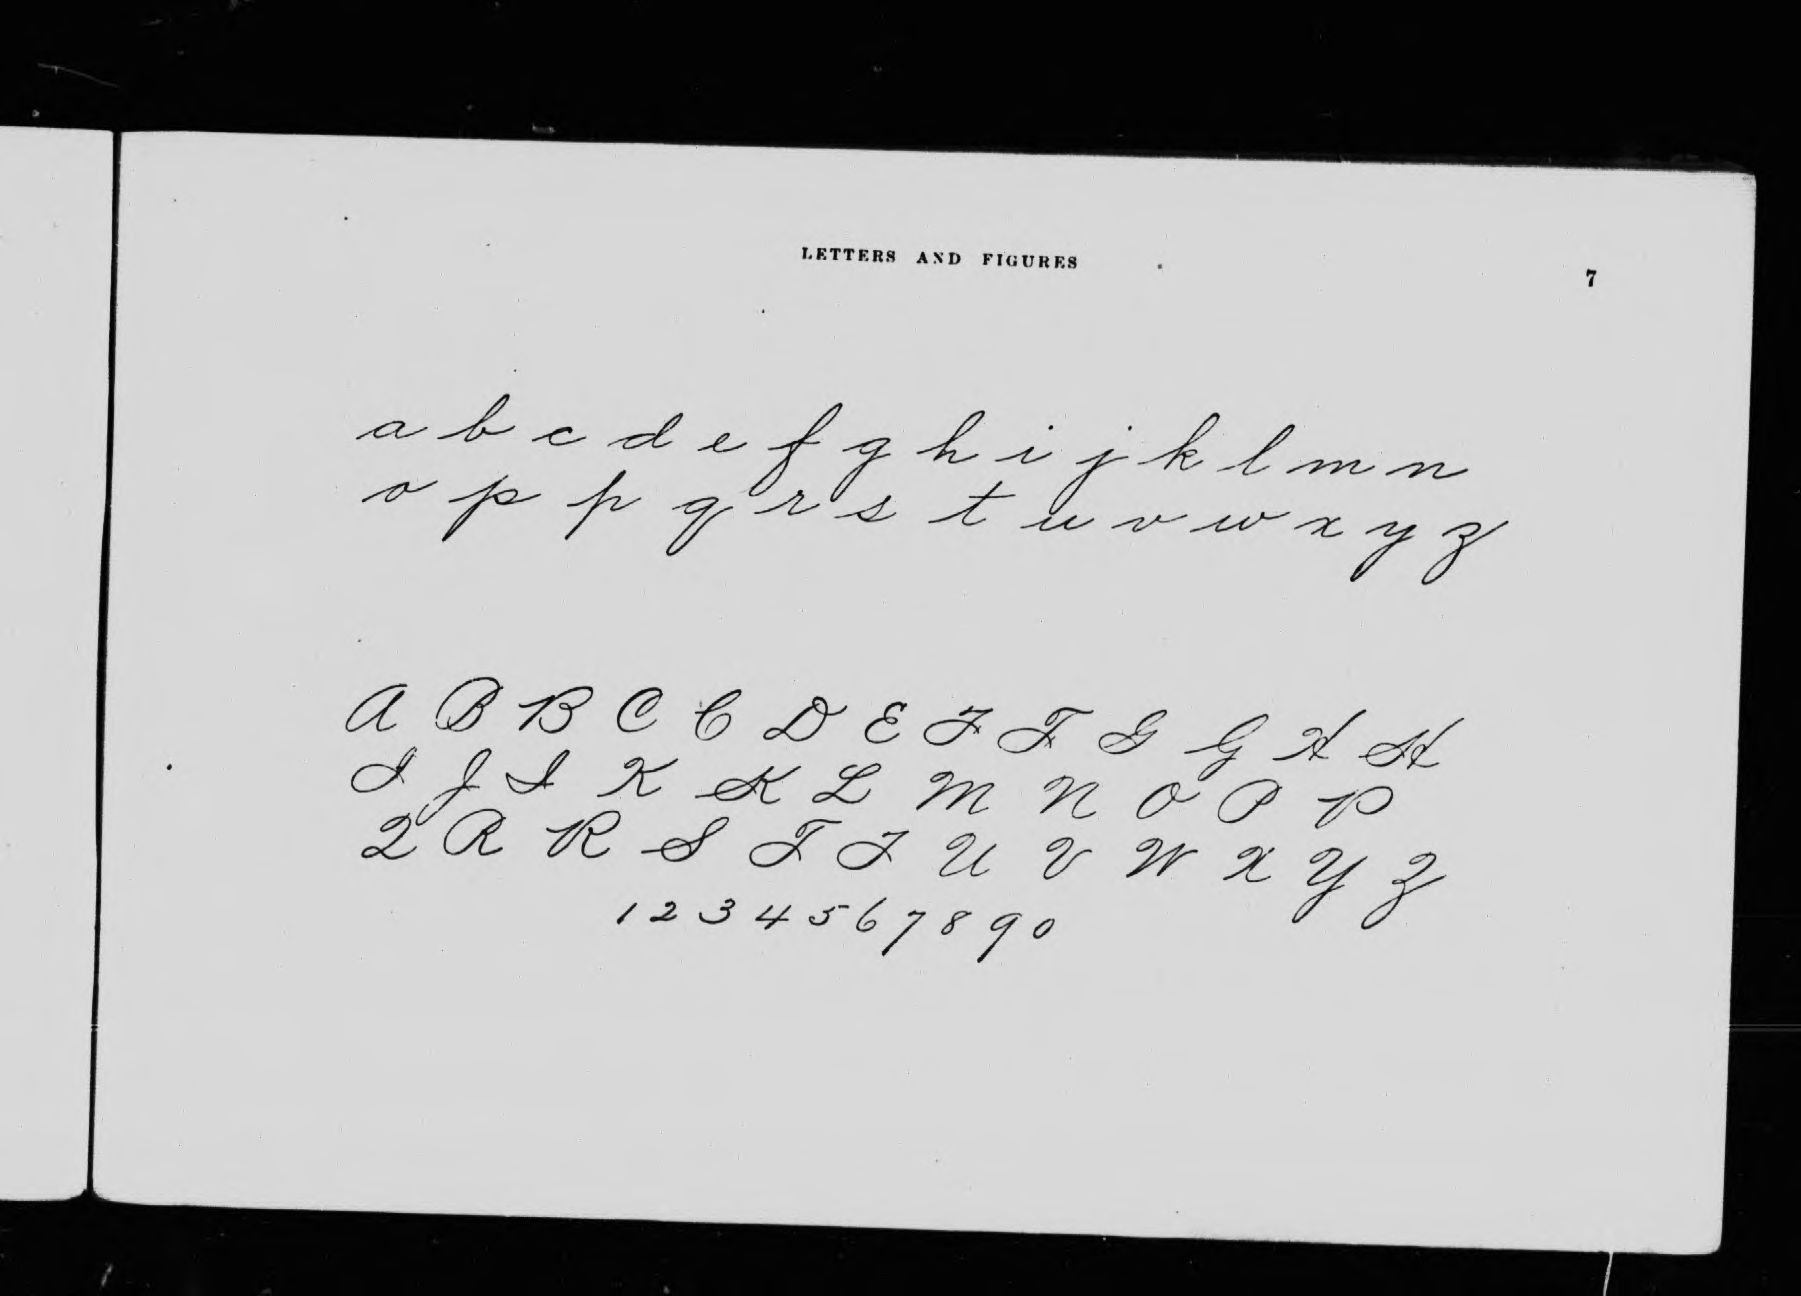 LETTERS AND FIGURES
7
a b c d e f g h i j k l m n
o p p q r s t u v w x y z
A B B C C D E F F G G H H
I J I K K L M N O P P
Q R R S T T U V W X Y Z
1 2 3 4 5 6 7 8 9 0